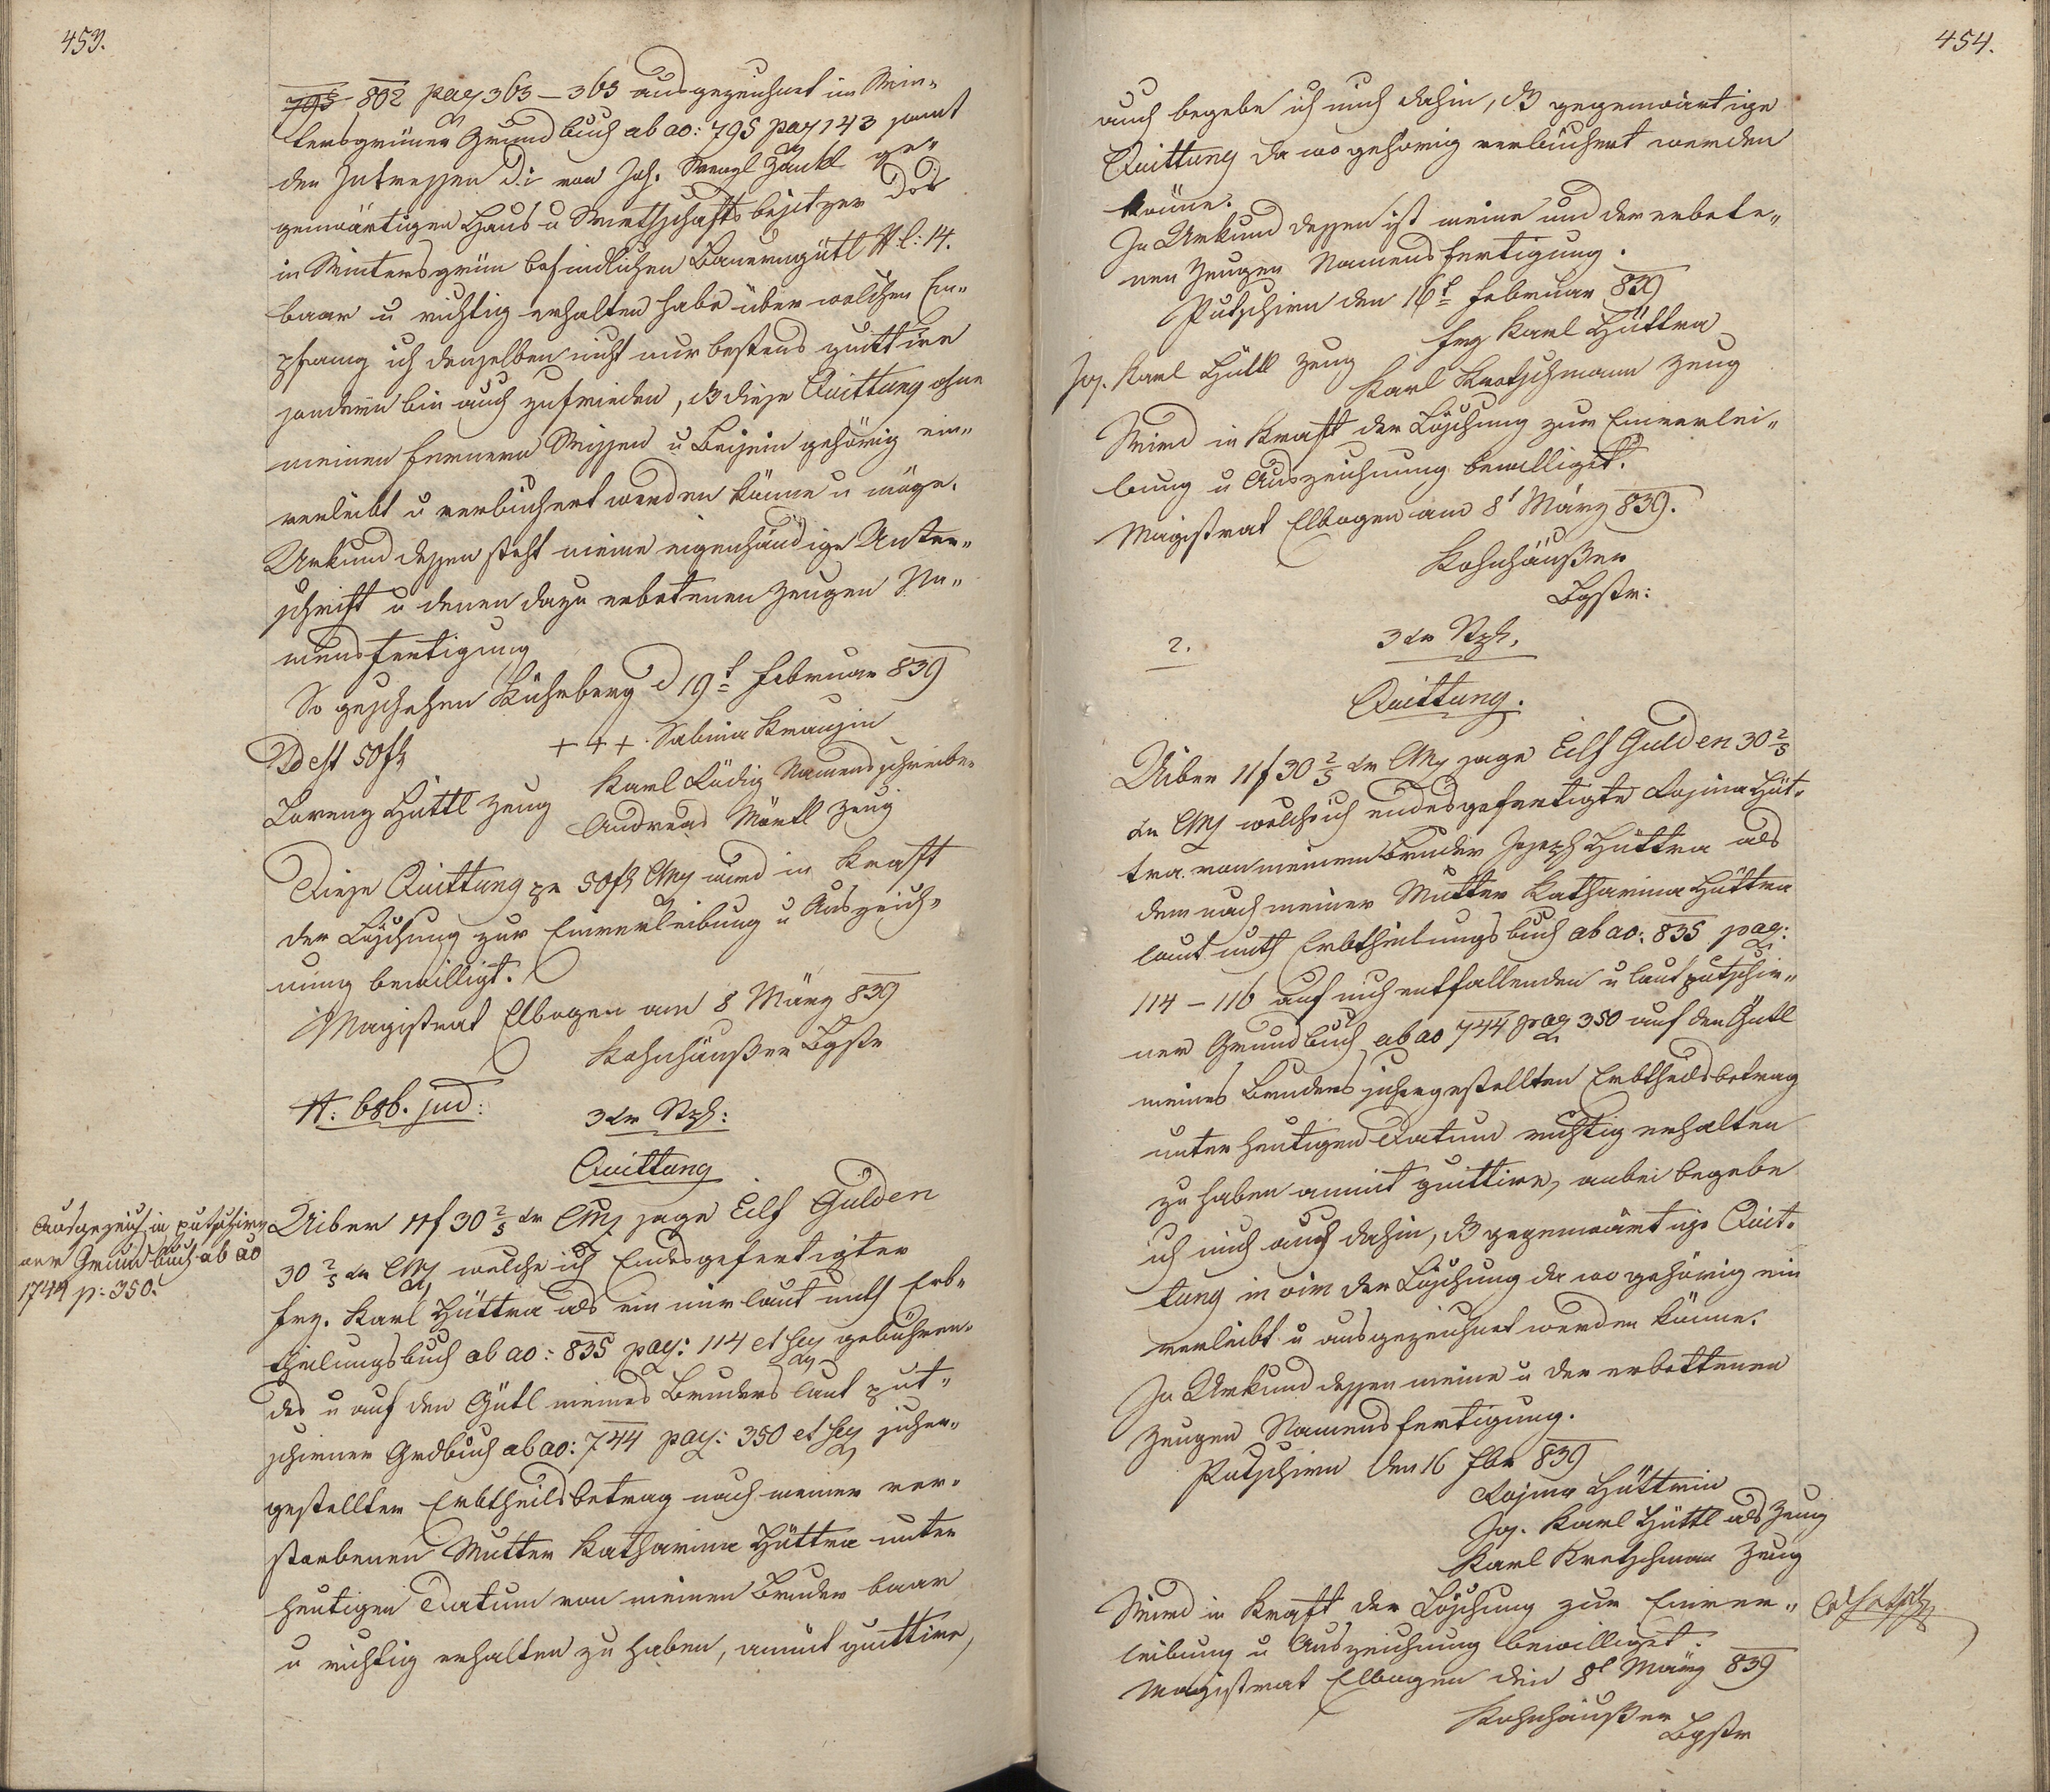 453.
795 802 pag 363 – 365 ausgezeichnet im Win-
tersgrüner Grundbuch ab ao: 795 pag 143 sammt
den Intressen d: i von Joh. Wenzl Zankl ge-
genwärtigen Haus u Wirthschafts besitzer des
in Wintersgrün befindlichen Bauerngütl N. C: 14.
baar u richtig erhalten habe über welchen Em-
pfang ich denselben nicht nur bestens quittire
sondern bin auch zufrieden, dß diese Quittung ohne
meinen fernern Wissen u Beisein gehörig ein-
verleibt u verbüchert werden könne u möge.
Urkund dessen steht meine eigenhändige Unter-
schrift u denen dazu erbetenen Zeugen Na-
mensfertigung
So geschehen d 19t Februar 839
Id est 50 fl
+++ Sabina Krausin
Karl Rädig Namensschreiber
Lorenz Hüttl Zeug
Andreas Zeug
Diese Quittung pr 50 fl CMz wird in Kraft
der Löschung zur Einverleibung u Auszeich-
nung bewilligt.
Magistrat Elbogen am 8 März 839
Kohnhäußer Bgstr
N: 686. jud:
3 kr Stph:
Quittung
Ausgezeich in putschirn
ner Grundbuch ab ao
1744 p: 350.
Uiber 11 f 30 2/5 kr CMz sage Eilf Gulden
30 2/5 kr CMz welche ich Endesgefertigter
Frz. Karl Hüttra als ein mir laut Erb-
theilungsbuch ab ao: 835 pag: 114 et seq gebühren-
des u auf den Gütl meines Bruders laut put-
schirner Grdbuch ab ao: 744 pag: 350 et seq sicher-
gestellten Erbtheilsbetrag nach meiner ver-
storbenen Mutter Katharina Hüttra unter
heutigen Datum von meinen Bruder baar
u richtig erhalten zu haben, anmit quittire,
454.
auch begebe ich mich dahin, dß gegenwärtige
Quittung da wo gehörig verbüchert werden
könne.
In Urkund dessen ist meine und der erbete-
nen Zeugen Namensfertigung.
Putschirn den 16t Februar 839
Frz Karl Hüttra
Jos. Karl Hüttl Zeug
Karl Kretschmann Zeug
Wird in Kraft der Löschung zur Einverlei-
bung u Auszeichnung bewilliget.
Magistrat Elbogen am 8t März 839.
Kohnhäußer
Bgstr:
2.
3 kr Stph.
Quittung.
Uiber 11 f 30 2/5 kr CMz sage Eilf Gulden 30 2/5
kr CMz welche ich endesgefertigte Rosina Hüt-
tra von meinem Bruder Joseph Hüttra als
dem nach meiner Mutter Katharina Hüttra
laut Erbtheilungsbuch ab ao: 835 pag:
114 – 116 auf mich entfallenden u laut putschir-
ner Grundbuch ab ao 744 pag 350 auf den Gütl
meines Bruders sichergestellten Erbtheilsbetrag
unter heutigen Datum richtig erhalten
zu haben anmit quittire, anbei begebe
ich mich auch dahin, dß gegenwärtige Quit-
tung in vim der Löschung da wo gehörig ein
verleibt u ausgezeichnet werden könne.
In Urkund dessen meine u der erbettenen
Zeugen Namensfertigung.
Putschirn den 16 Fbr 839
Rosina Hüttrin
Jos. Karl Hüttl als Zeug
Karl Kretschman Zeug
Wird in Kraft der Löschung zur Einver-
leibung u Auszeichnung bewilliget.
Magistrat Elbogen den 8t März 839
Kohnhäußer
Bgstr